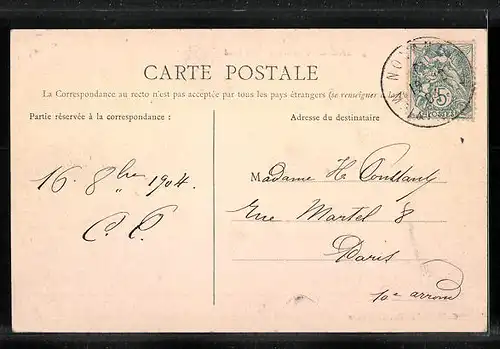 CARTE POSTALE
La Correspondance au recto n'est pas acceptée par tous les pays étrangers (se renseigner
Partie réservée à la correspondance :
Adresse du destinataire
16. 8bre 1904.
C. C.
Madame H. Constant
Rue Martel 8
Paris
10e arrond
5
POSTES